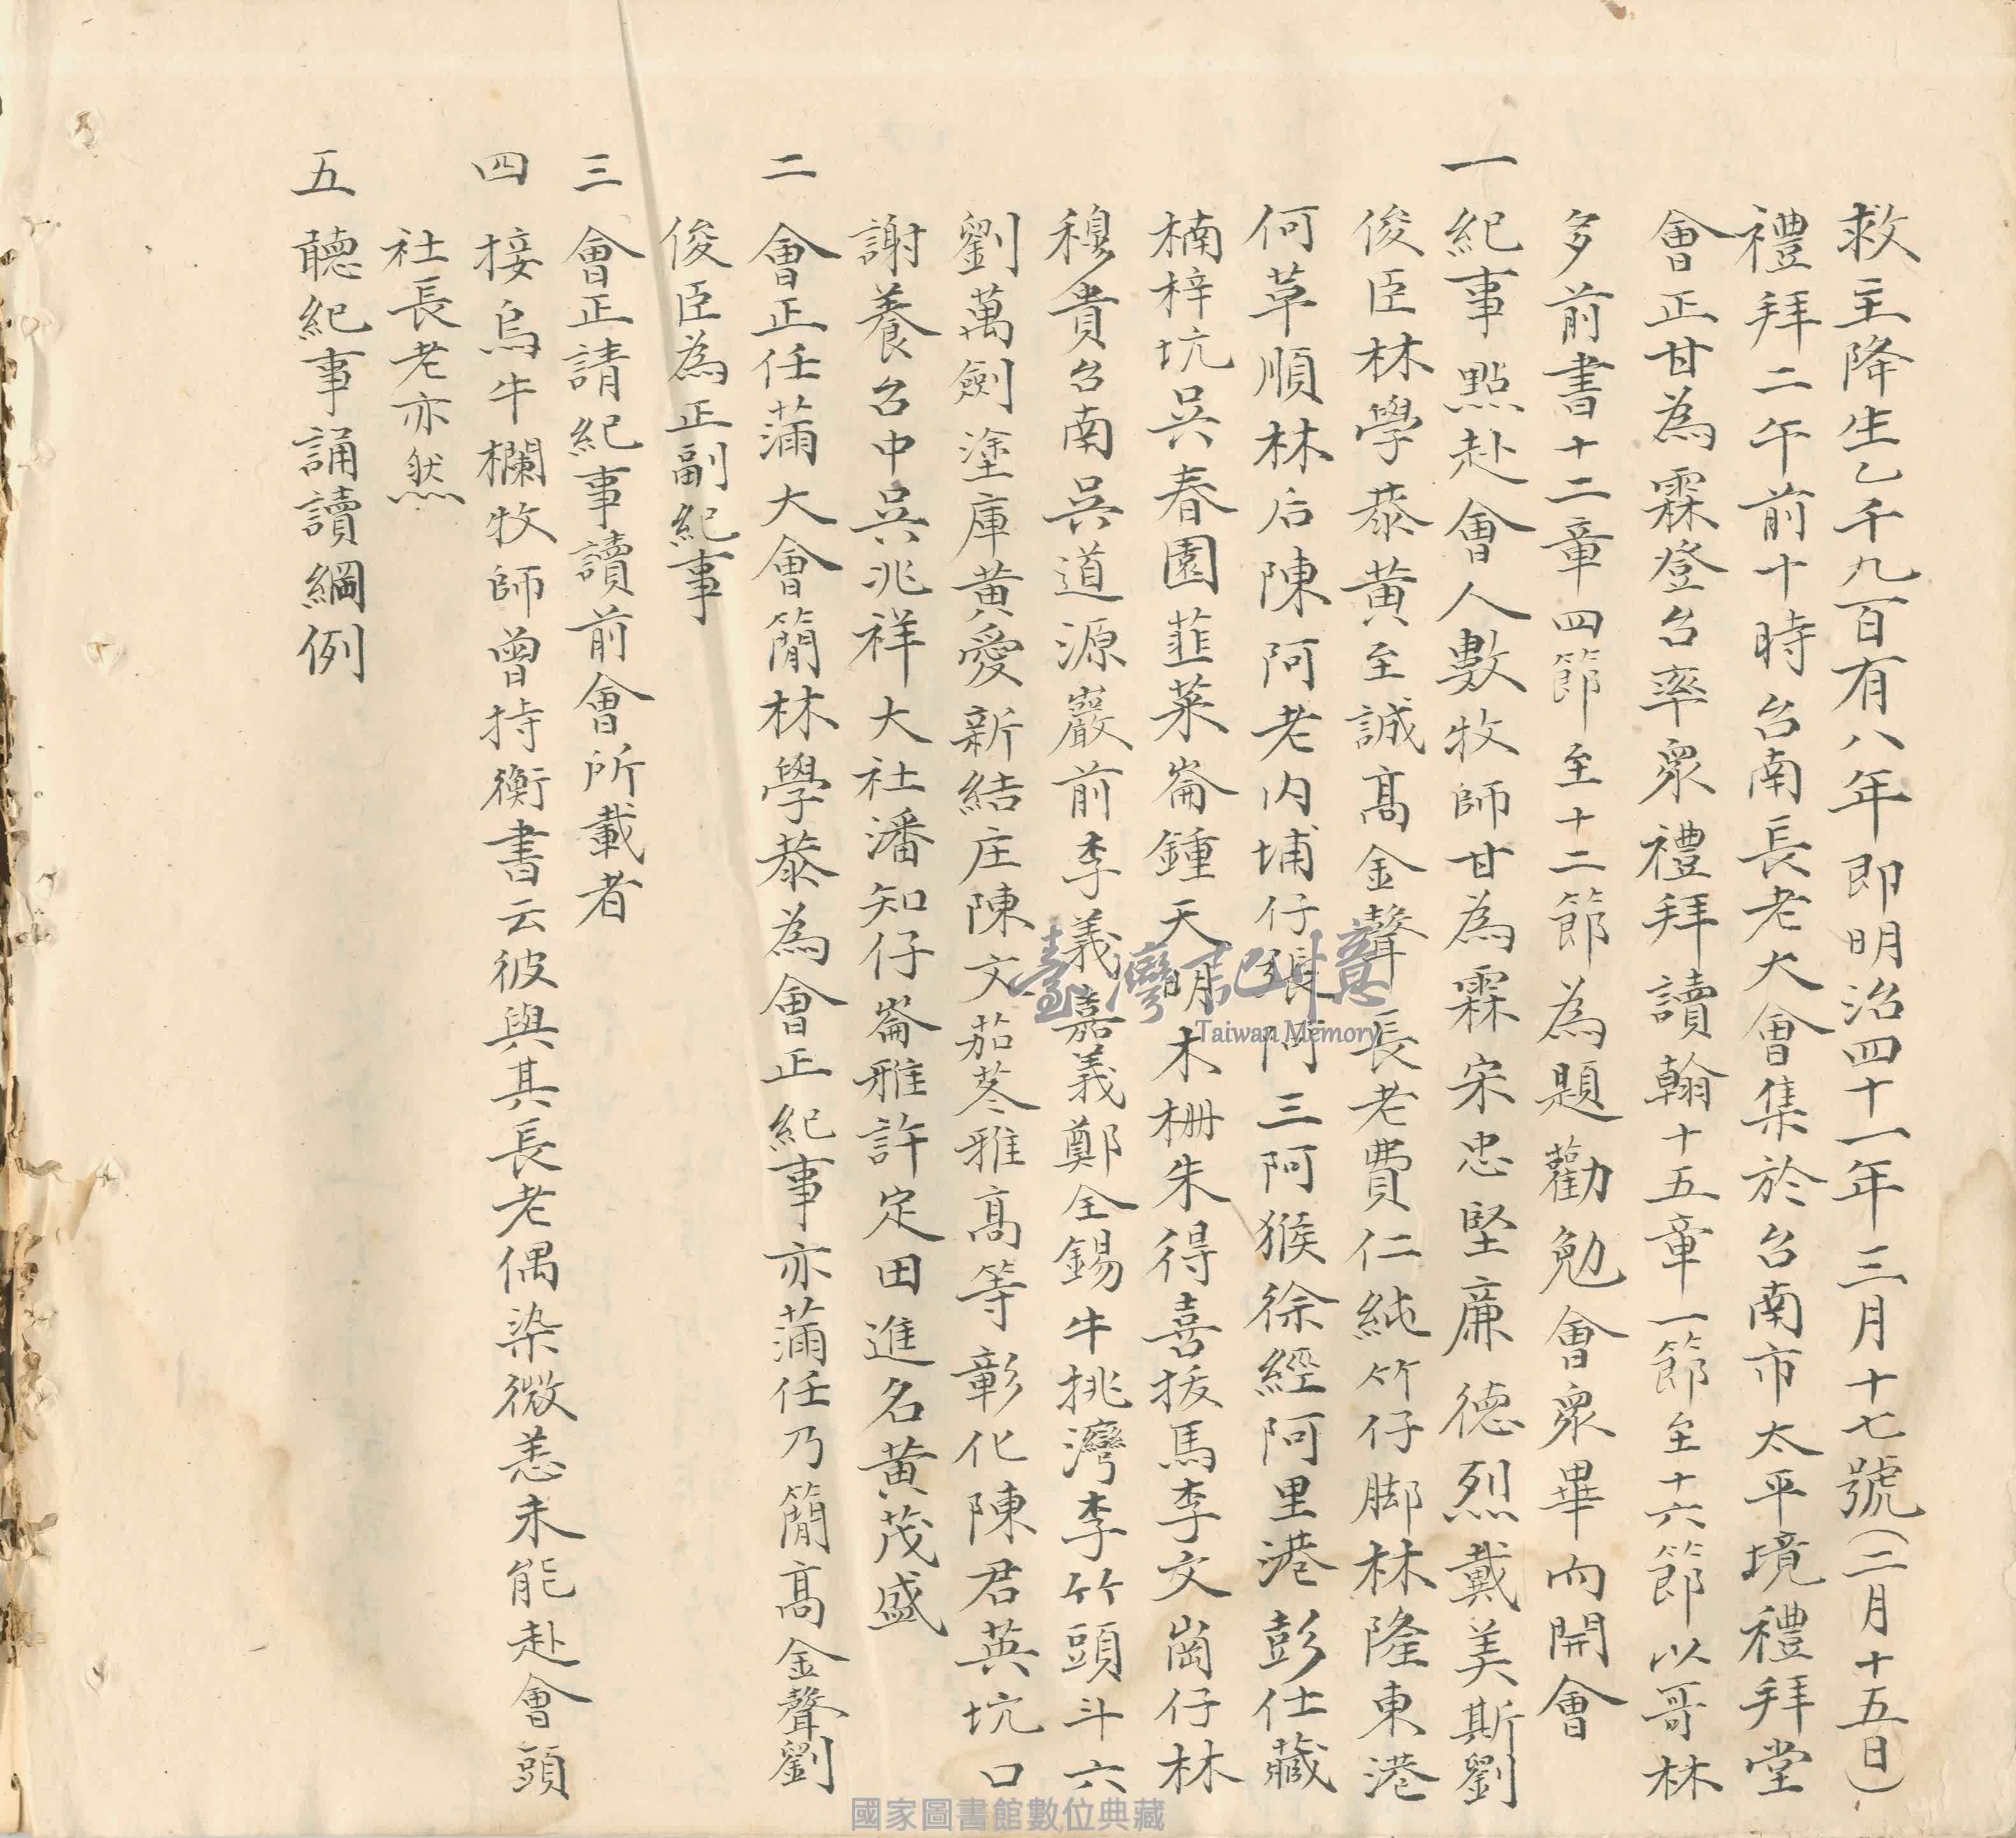 救主降生乙千九百有八年即明治四十一年三月十七號(二月十五日)
禮拜二午前十時台南長老大會集於台南市太平境禮拜堂
會正甘為霖登台率衆禮拜讀翰十五章一節至十六節以哥林
多前書十二章四節至十二節為題勸勉會衆畢而開會
一 紀事點赴會人數牧師甘為霖宋忠堅廉德烈戴美斯劉
俊臣林學恭黃至誠高金聲長老費仁純竹仔脚林隆東港
何草順林后陳阿老内埔仔張阿三阿猴徐經阿里港彭仕藏
楠梓坑吳春園韮菜崙鍾天明木柵朱得喜拔馬李文崗仔林
穆貴台南吳道源巖前李義嘉義鄭全錫牛挑灣李竹頭斗六
劉萬劍塗庫黃愛新結庄陳文茄苳雅高等彰化陳君英坑口
謝養台中吳兆祥大社潘知仔崙雅許定田進名黃茂盛
二 會正任滿大會簡林學恭為會正紀事亦滿任乃簡高金聲劉
俊臣為正副紀事
三 會正請紀事讀前會所載者
四 接烏牛欄牧師曾持衡書云彼與其長老偶染微恙未能赴會頭
社長老亦然
五 聽紀事誦讀綱例
臺灣記憶
Taiwan Memory
國家圖書館數位典藏